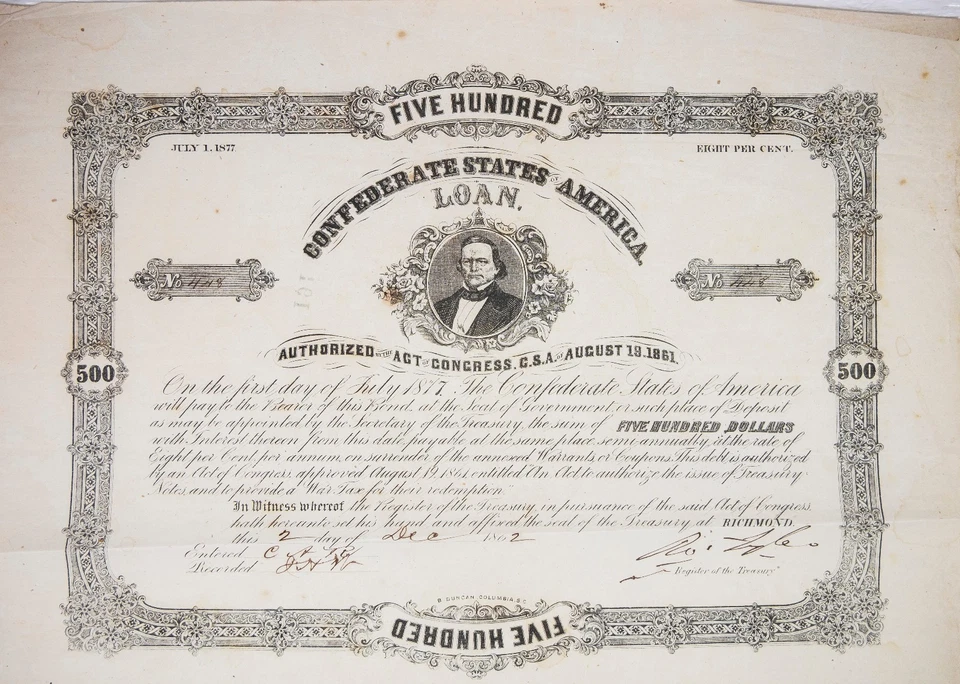 FIVE HUNDRED
JULY 1. 1877. EIGHT PER CENT.
CONFEDERATE STATES OF AMERICA.
LOAN.
No 448 No 448
AUTHORIZED BY THE ACT OF CONGRESS, C.S.A. OF AUGUST 19. 1861.
500 500
On the first day of July 1877, The Confederate States of America
will pay to the Bearer of this Bond, at the Seat of Government, or such place of Deposit
as may be appointed by the Secretary of the Treasury, the sum of FIVE HUNDRED DOLLARS
with Interest thereon from this date, payable at the same place, semi-annually, at the rate of
Eight per Cent. per annum, on surrender of the annexed Warrants or Coupons. This debt is authorized
by an Act of Congress, approved August 19, 1861, entitled "An Act to authorize the issue of Treasury
Notes, and to provide a War Tax for their redemption."
In Witness whereof the Register of the Treasury, in pursuance of the said Act of Congress,
hath hereunto set his hand and affixed the seal of the Treasury, at RICHMOND,
this 2 day of Dec 1862
Entered
Recorded
Register of the Treasury
B. DUNCAN, COLUMBIA, S.C.
FIVE HUNDRED